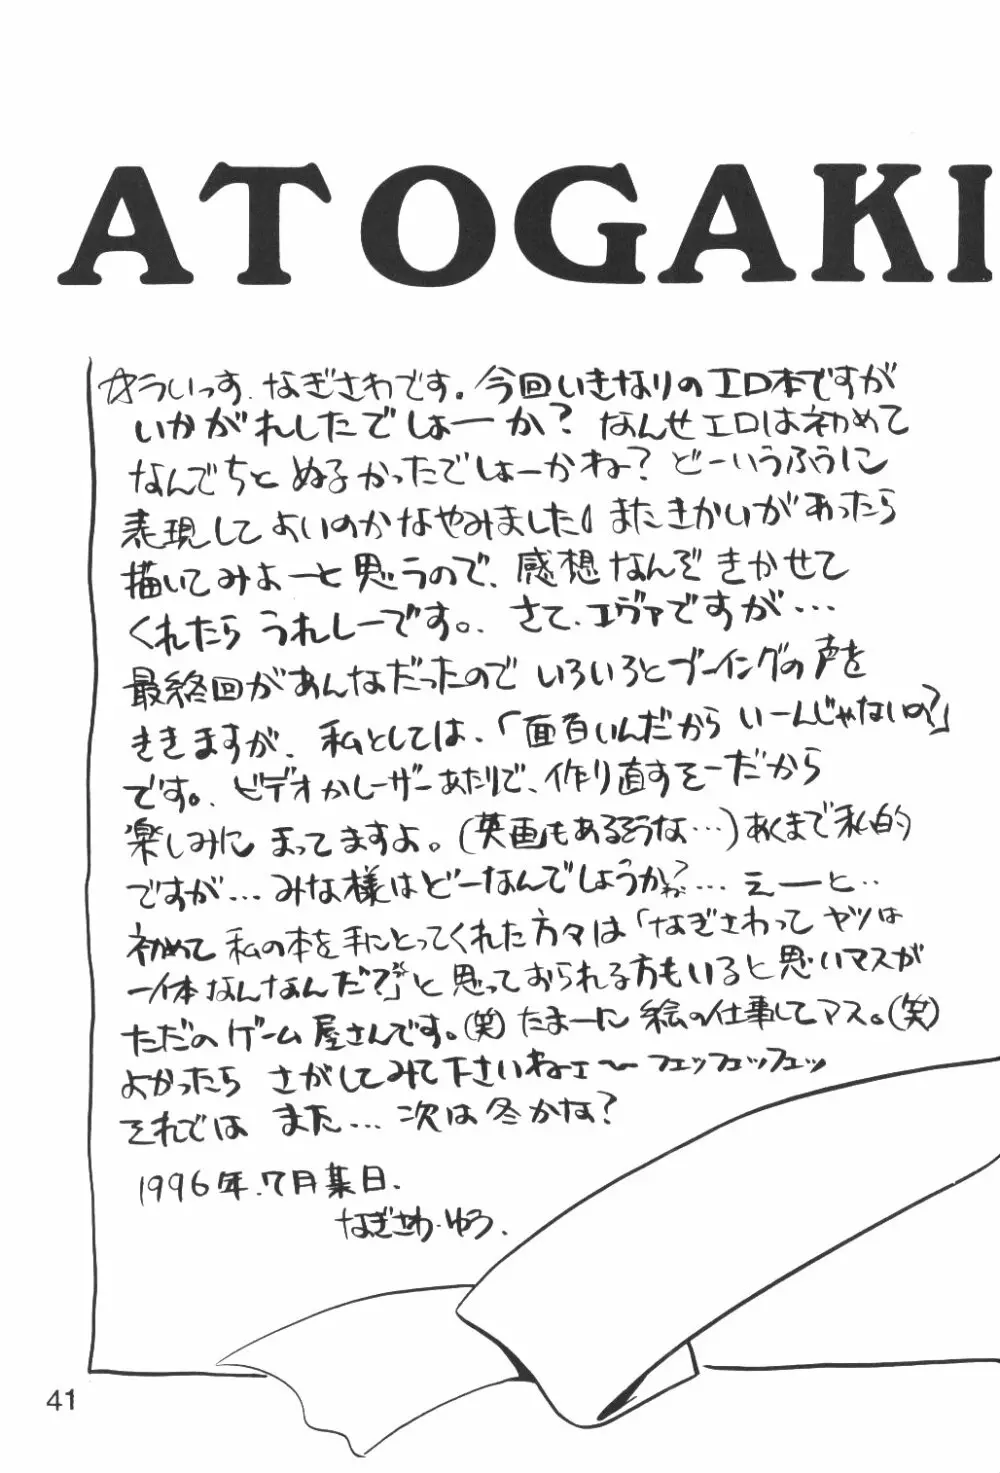 ATOGAKI
☆ういっす、なぎさわです。今回いきなりのエロ本ですが
いかがれしたでしょーか？なんせエロは初めて
なんでちとぬるかったでしょーかね？どーいうふうに
表現してよいのかなやみました。またきかいがあったら
描いてみよーと思うので、感想なんぞきかせて
くれたらうれしーです。さて、エヴァですが…
最終回があんなだったのでいろいろとブーイングの声を
ききますが、私としては、「面白いんだからいーんじゃないの？」
です。ビデオかレーザーあたりで、作り直すそーだから
楽しみにまってますよ。（英画もあるそうな…）あくまで私的
ですが…みな様はどーなんでしょうかねっ？…えーと‥
初めて私の本を手にとってくれた方々は「なぎさわってヤツは
一体なんなんだ？」と思っておられる方もいると思いマスが
ただのゲーム屋さんです。（笑）たまーに絵の仕事してマス。（笑）
よかったらさがしてみて下さいねェ〜フェッフェッフェッ
それではまた…次は冬かな？
1996年.7月某日.
なぎさわ・ゆう.
41